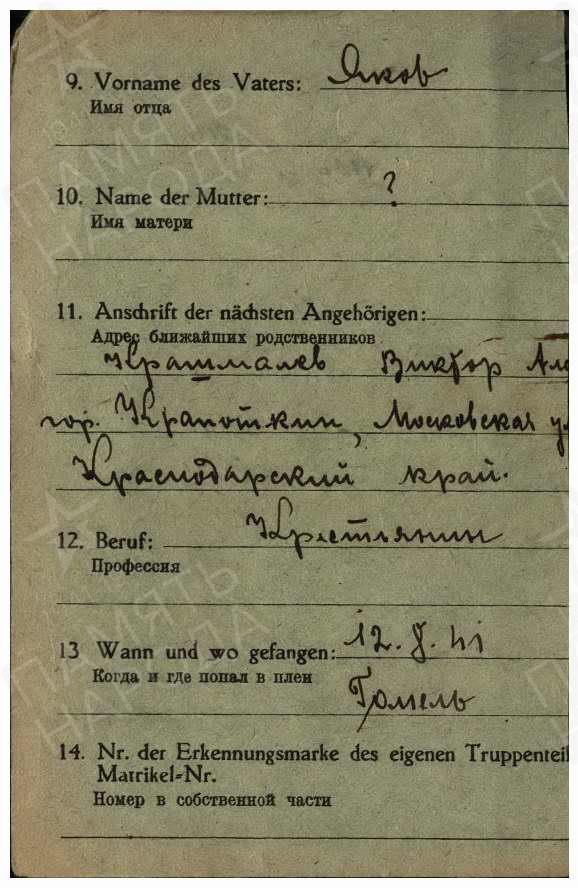 9. Vorname des Vaters: Яков
Имя отца
10. Name der Mutter: ?
Имя матери
11. Anschrift der nächsten Angehörigen:
Адрес ближайших родственников
Крашмалев Виктор Але
гор. Крапоткин, Московская ул
Краснодарский край.
12. Beruf: Крестьянин
Профессия
13 Wann und wo gefangen: 12. 8. 41
Когда и где попал в плен
Гомель
14. Nr. der Erkennungsmarke des eigenen Truppenteil
Matrikel=Nr.
Номер в собственной части
ПАМЯТЬ
НАРОДА
ПАМЯТЬ
НАРОДА